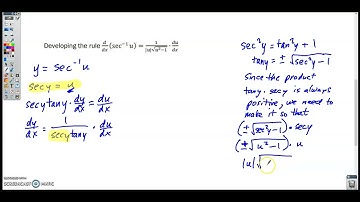 Developing the rule d/dx (sec⁻¹ u) = 1/(|u|√(u²−1)) · du/dx
y = sec⁻¹ u
sec y = u
sec y tan y · dy/dx = du/dx
dy/dx = 1/(sec y tan y) · du/dx
sec² y = tan² y + 1
tan y = ± √(sec² y − 1)
Since the product
tan y · sec y is always
positive, we need to
make it so that
(± √(sec² y − 1)) · sec y
(± √(u² − 1)) · u
|u| √